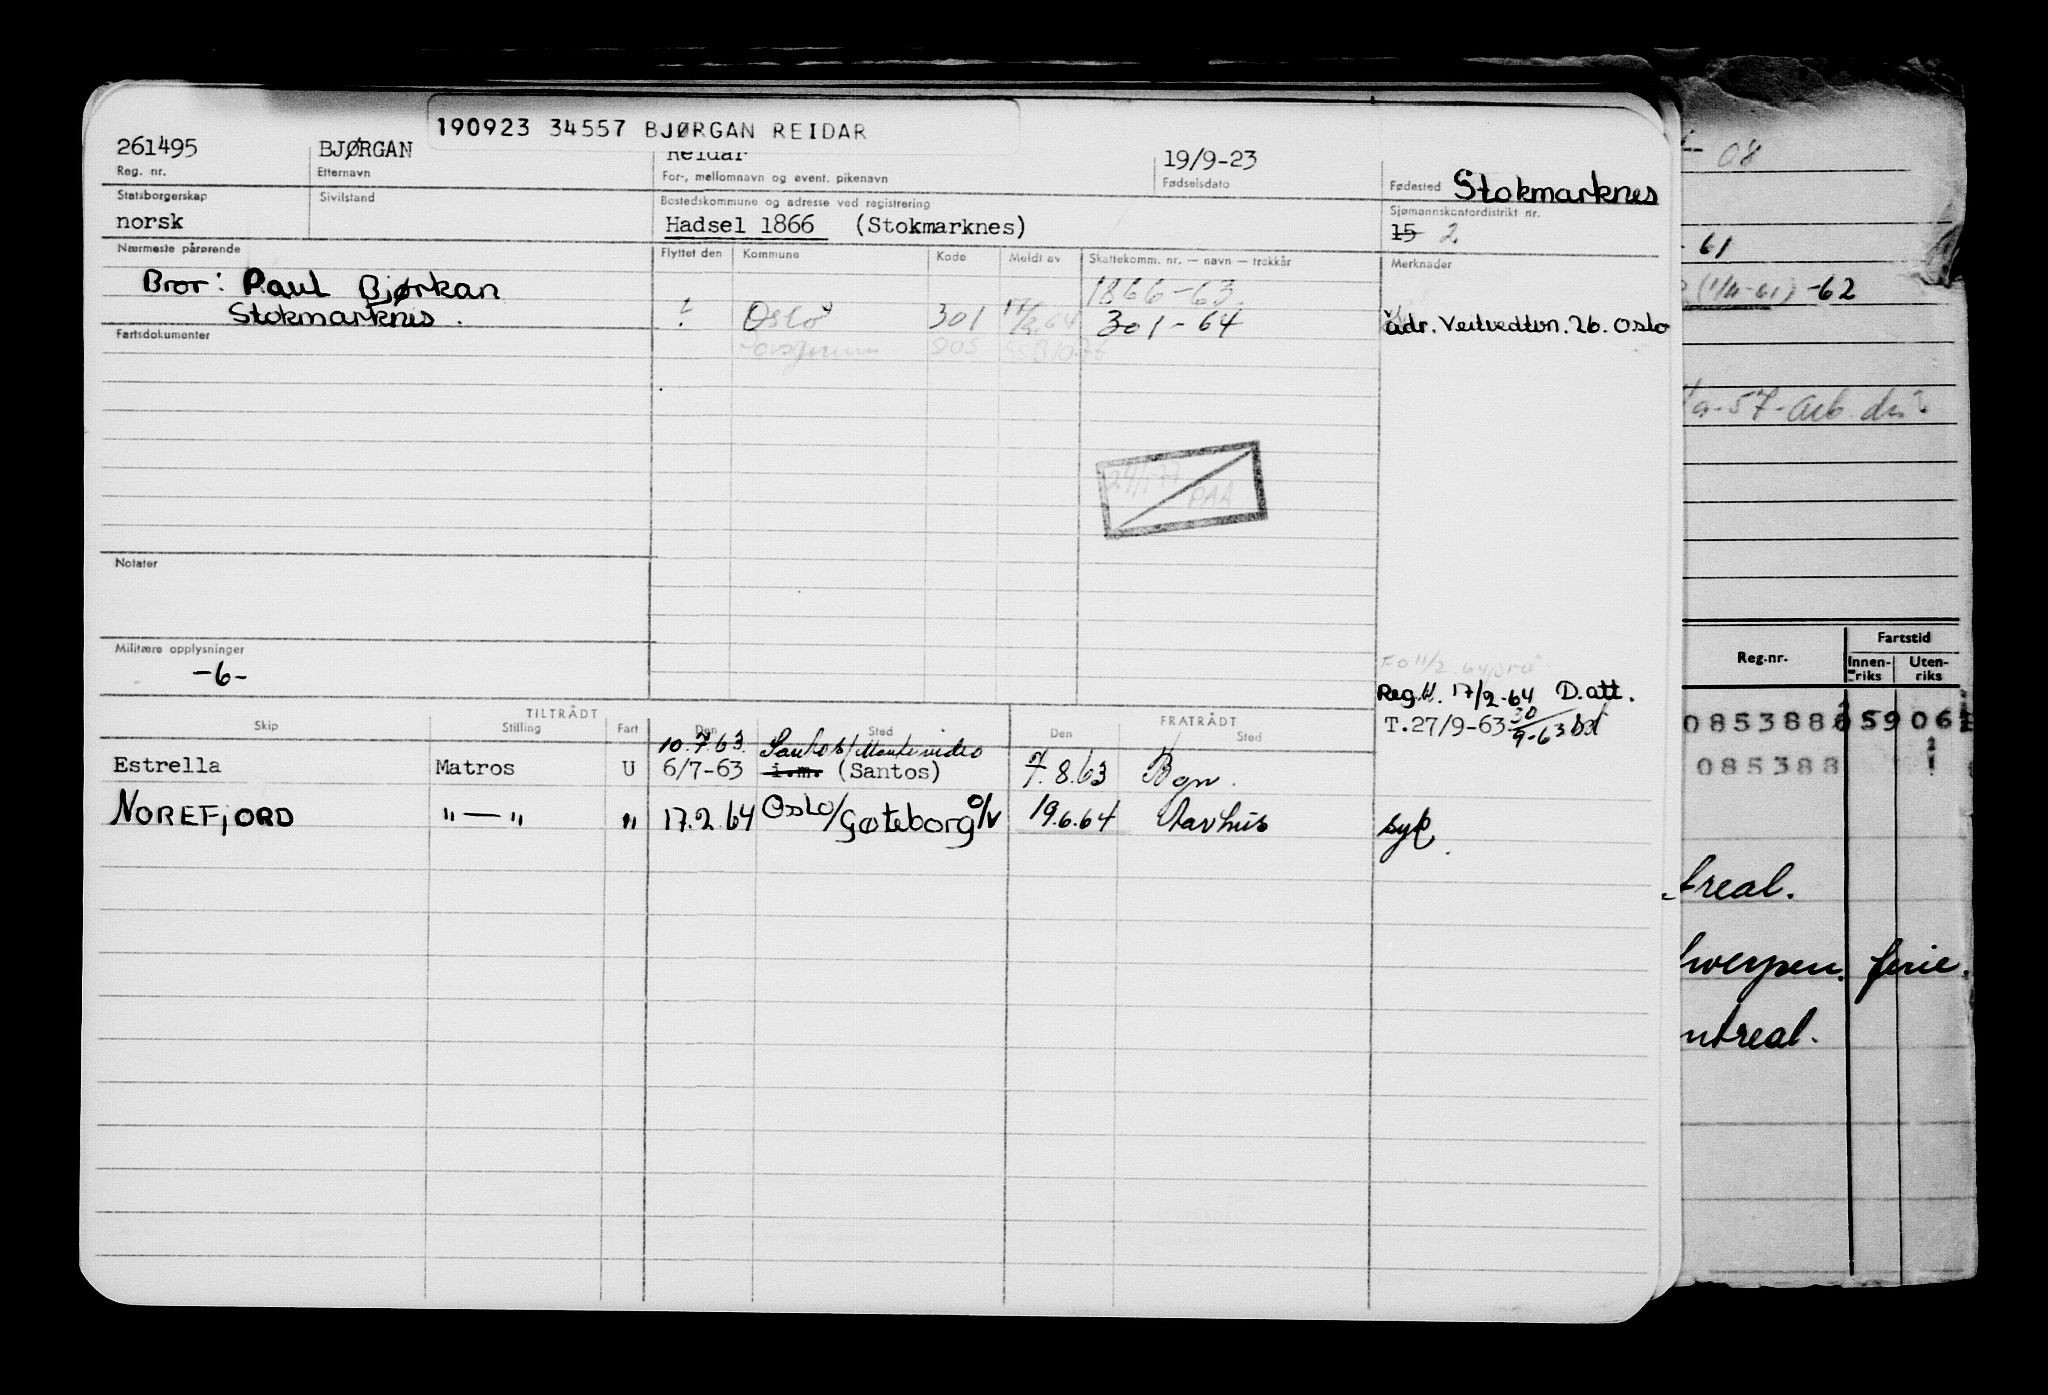 190923 34557 BJØRGAN REIDAR
261495 BJØRGAN Reidar 19/9-23 Fødested Stokmarknes
Reg. nr. Etternavn For-, mellomnavn og event. pikenavn Fødselsdato
Statsborgerskap Sivilstand Bostedskommune og adresse ved registrering Sjømannskontordistrikt nr.
norsk Hadsel 1866 (Stokmarknes) 15 2
Nærmeste pårørende Flyttet den Kommune Kode Meldt av Skattekomm. nr. — navn — trekkår Merknader
Bror: Paul Bjørkan 1866-63.
Stokmarknes. ? Oslo 301 17/2 64 301-64 adr. Veitvedtvn. 26. Oslo
Fartsdokumenter
24/1 77
PAA
Notater
Militære opplysninger
-6-
Reg.H. 17/2-64 D.att.
T.27/9-63 30/9-63
TILTRÅDT FRATRÅDT
Skip Stilling Fart Den Sted Den Sted
10.7.63. Santos/Montevideo
Estrella Matros U 6/7-63 i.m. (Santos) 7.8.63 Bgn.
NOREFJORD "—" " 17.2.64 Oslo/Gøteborg o/v 19.6.64 Aarhus syk.
08
61
(1/4-61) -62
-57-arb
Reg.nr. Fartstid
Innen-riks Uten-riks
085388
treal.
werpen. ferie.
ntreal.